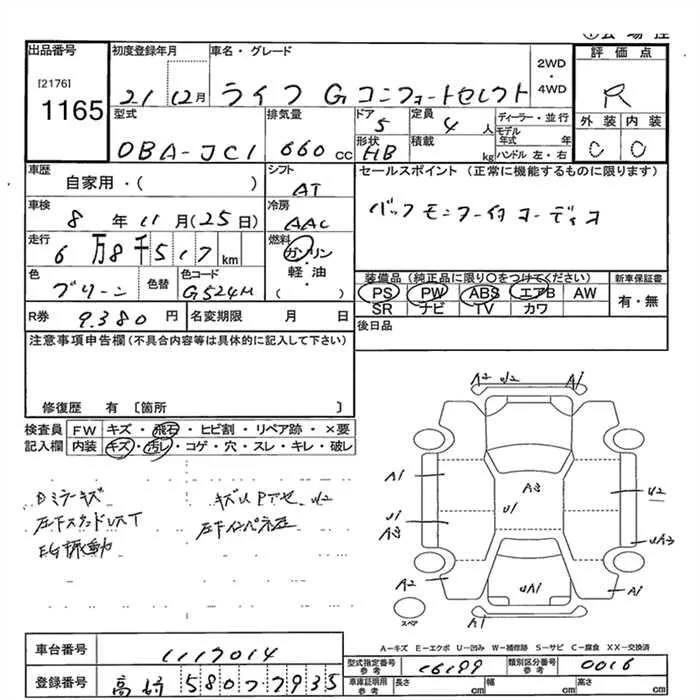 出品番号
[2176]
1165
初度登録年月
21 12月
車名・グレード
ライフ G コンフォートセレクト
2WD
・
4WD
評価点
R
外装 内装
C C
型式
DBA-JC1
排気量
660 cc
ドア
5
定員
4 人
形状
HB
積載
kg
ディーラー・並行
モデル年式 年
ハンドル 左・右
車歴
自家用・( )
シフト
AT
セールスポイント (正常に機能するものに限ります)
車検
8 年 11 月(25日)
冷房
AAC
走行
6 万 8 千 5 1 7 km
燃料
ガソリン
・
軽油
( )
色
グリーン
色替
色コード
G524M
装備品 (純正品に限り○をつけてください)
PS PW ABS エアB AW
SR ナビ TV カワ
新車保証書
有・無
R券 9.380 円
名変期限 月 日
後日品
注意事項申告欄(不具合内容等は具体的に記入して下さい)
修復歴 有 〔箇所 〕
検査員
記入欄
FW キズ・飛石・ヒビ割・リペア跡・×要
内装 キズ・汚レ・コゲ・穴・スレ・キレ・破レ
A2 U2 A1
A1
A3
U1
U2
U1
A3
UA3
A2
UA1
A1
A1
スペア
A-キズ E-エクボ U-凹み W-補修跡 S-サビ C-腐食 XX-交換済
車台番号 1117014
型式指定番号
参考
16199
類別区分番号
参考
0016
登録番号 高崎 580 7 7935
車庫証明用
参考
長さ cm 幅 cm 高さ cm